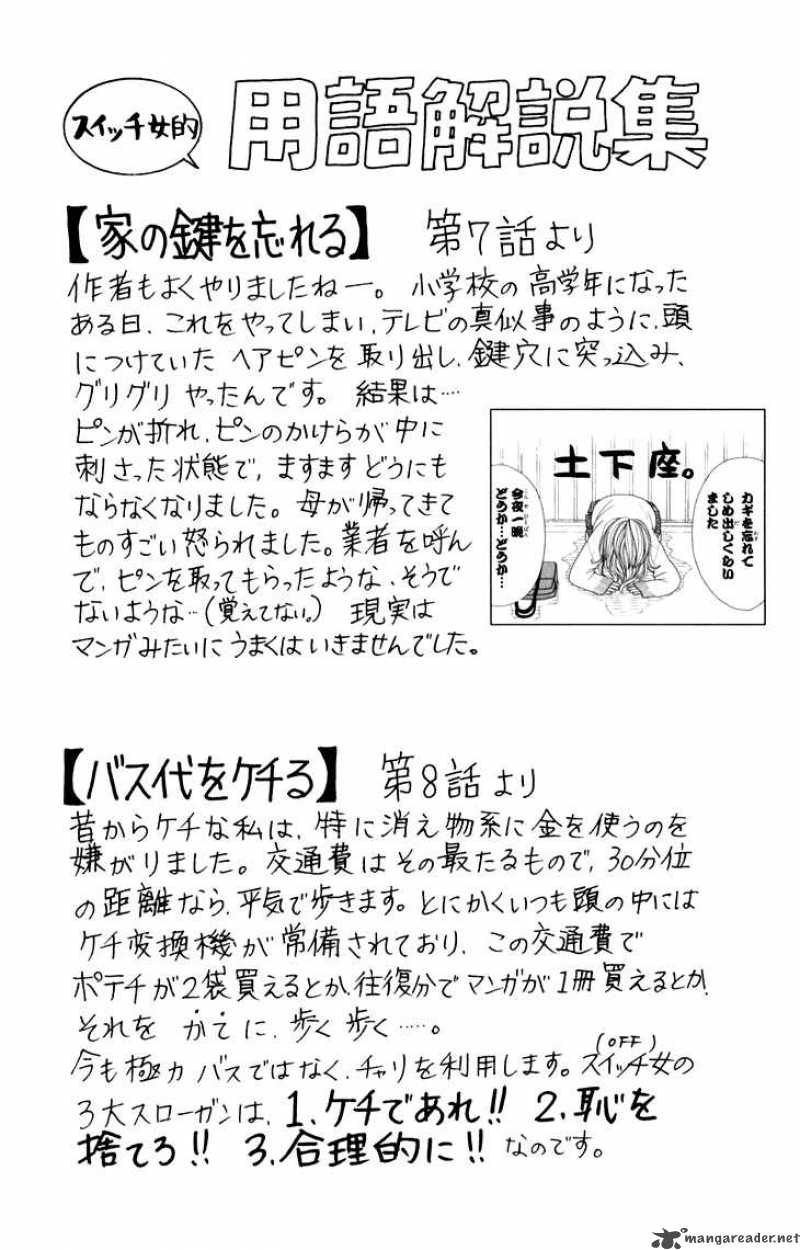 スイッチ女的
用語解説集
【家の鍵を忘れる】 第7話より
作者もよくやりましたねー。小学校の高学年になった
ある日、これをやってしまい、テレビの真似事のように、頭
につけていた ヘアピンを取り出し、鍵穴に突っ込み、
グリグリ やったんです。結果は…
ピンが折れ、ピンのかけらが中に
刺さった状態で、ますますどうにも
ならなくなりました。母が帰ってきて
ものすごい怒られました。業者を呼ん
で、ピンを取ってもらったような、そうで
ないような…(覚えてない。) 現実は
マンガみたいにうまくはいきませんでした。
カギを忘れて
しめ出しくらい
ました
土下座。
今夜一晩
どうか…どうか…
【バス代をケチる】 第8話より
昔からケチな私は、特に消え物系に金を使うのを
嫌がりました。交通費はその最たるもので、30分位
の距離なら、平気で歩きます。とにかくいつも頭の中には
ケチ変換機が常備されており、この交通費で
ポテチが2袋買えるとか、往復分でマンガが1冊買えるとか、
それを かてに、歩く歩く……。
今も極力バスではなく、チャリを利用します。スイッチ女(OFF)の
3大スローガンは、1、ケチであれ!! 2、恥を
捨てろ!! 3、合理的に!! なのです。
mangareader.net